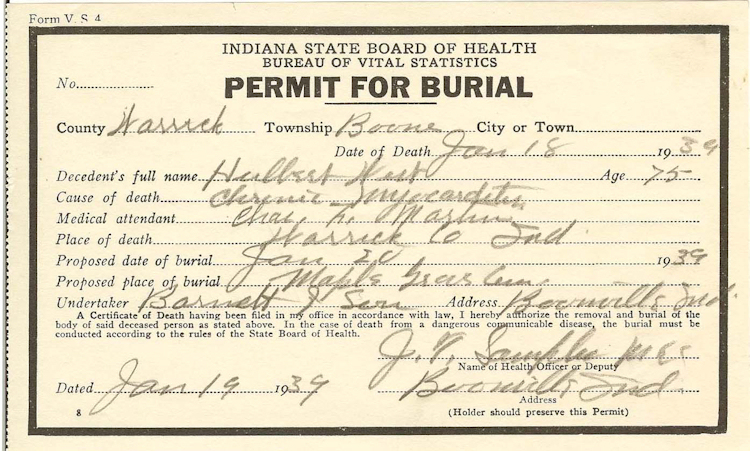 Form V. S. 4
INDIANA STATE BOARD OF HEALTH
BUREAU OF VITAL STATISTICS
No.
PERMIT FOR BURIAL
County Warrick Township Boone City or Town
Date of Death Jan 18 1939
Decedent's full name Hulbert West Age 75
Cause of death Chronic Myocarditis
Medical attendant Chas. Marlin
Place of death Warrick Co Ind
Proposed date of burial Jan 20 1939
Proposed place of burial Maple Grove Cem
Undertaker Barnett & Son Address Boonville Ind.
A Certificate of Death having been filed in my office in accordance with law, I hereby authorize the removal and burial of the
body of said deceased person as stated above. In the case of death from a dangerous communicable disease, the burial must be
conducted according to the rules of the State Board of Health.
J. T. Samples
Name of Health Officer or Deputy
Dated Jan 19 1939 Boonville Ind.
Address
8 (Holder should preserve this Permit)